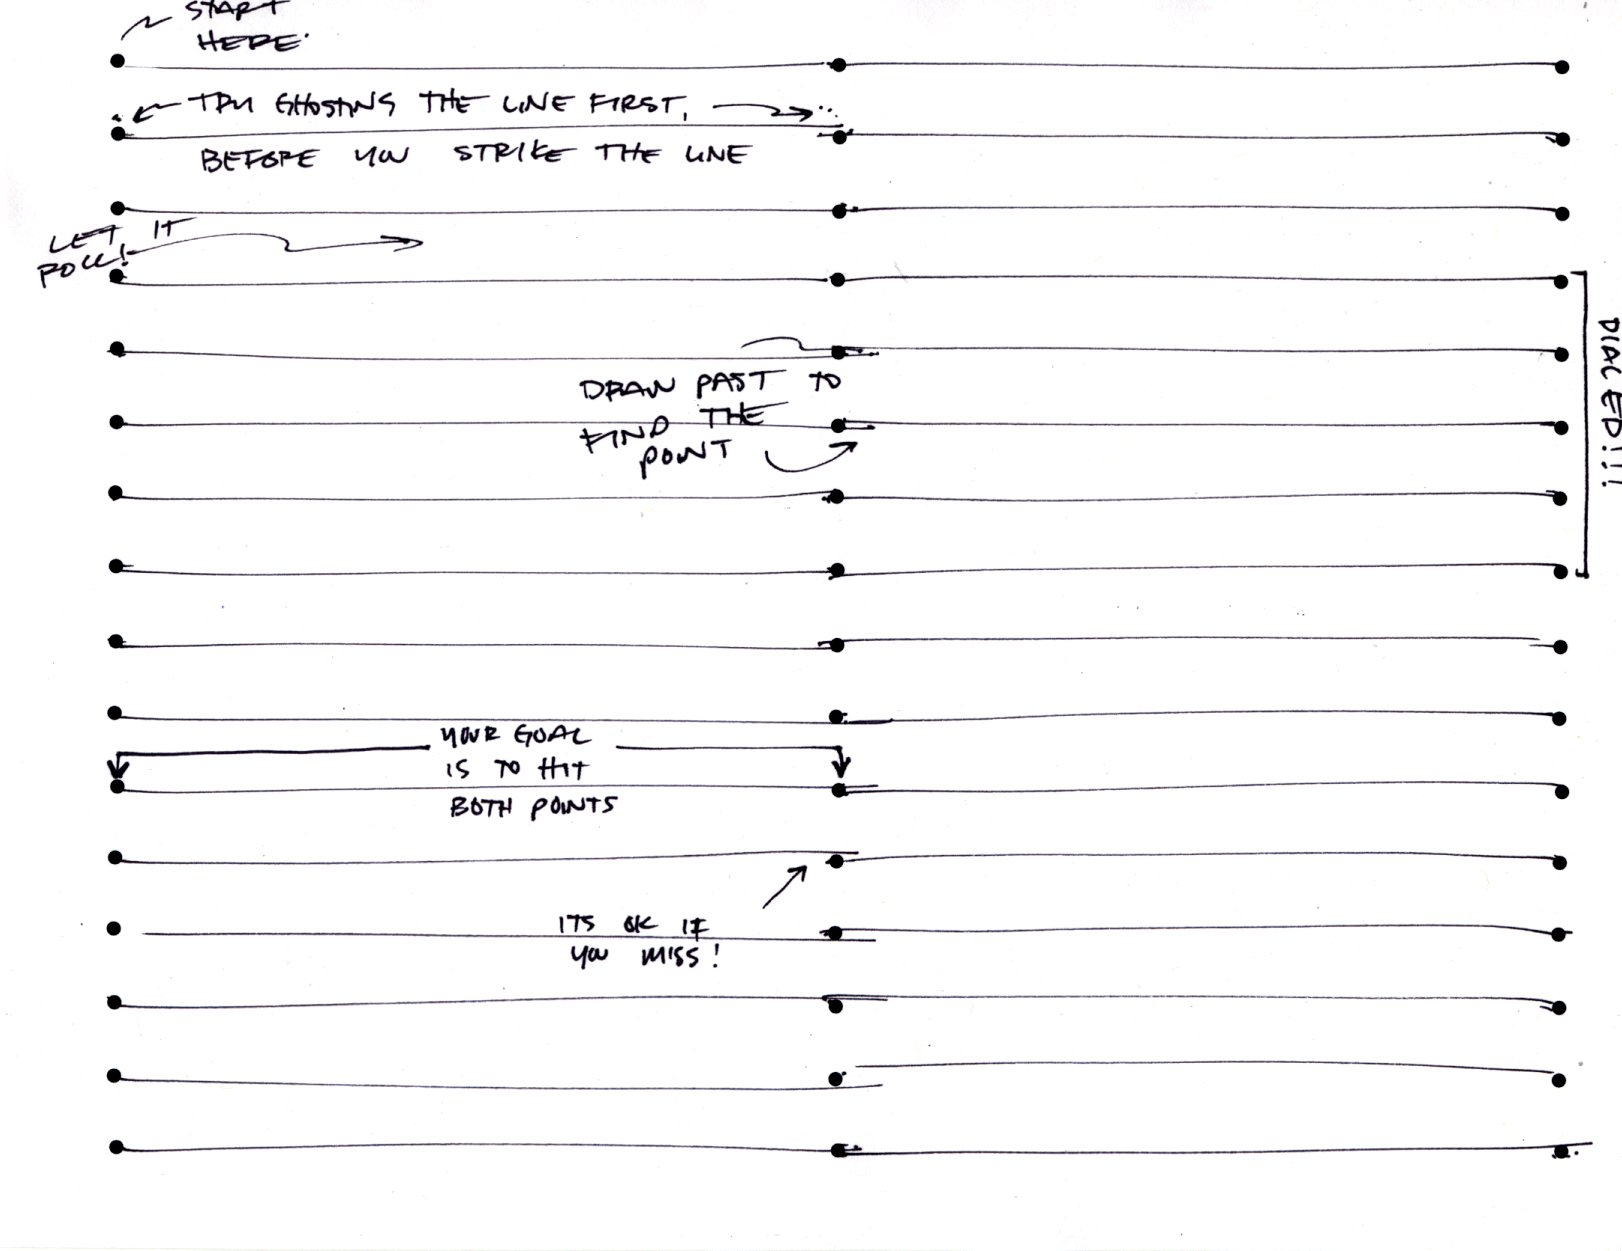 START
HERE.
TRY GHOSTING THE LINE FIRST,
BEFORE YOU STRIKE THE LINE
LET IT
ROLL!
DIALED!!!
DRAW PAST TO
FIND THE
POINT
YOUR GOAL
IS TO HIT
BOTH POINTS
ITS OK IF
YOU MISS!